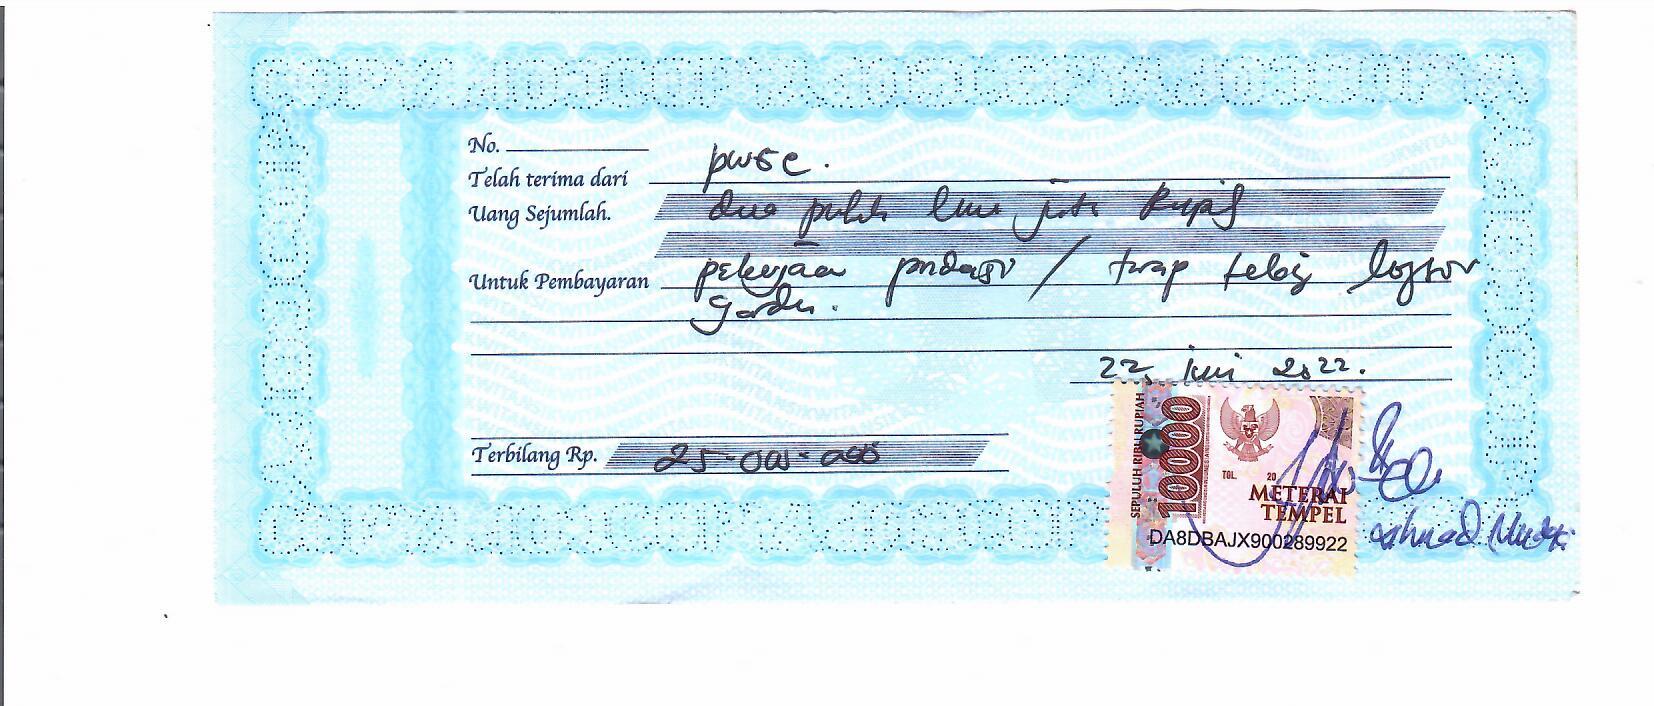 No.
Telah terima dari pwec.
Uang Sejumlah. dua puluh lima juta Rupiah
Untuk Pembayaran pekerjaan pondasi / trap tebing longsor
gardu.
22, juni 2022.
Terbilang Rp. 25.000.000
SEPULUH RIBU RUPIAH
10000
TGL. 20
METERAI
TEMPEL
DA8DBAJX900289922